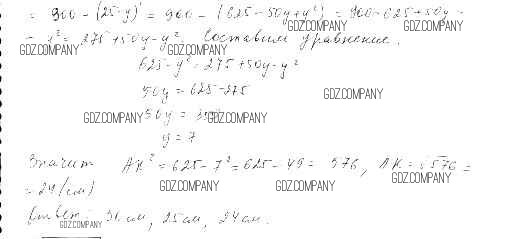 = 900 - (25-y)² = 900 - (625 - 50y + y²) = 900 - 625 + 50y -
- y² = 275 + 50y - y². Составим уравнение.
GDZ.COMPANY GDZ.COMPANY GDZ.COMPANY
625 - y² = 275 + 50y - y²
50y = 625 - 275
GDZ.COMPANY
50y = 350
GDZ.COMPANY GDZ.COMPANY
y = 7
Значит AK² = 625 - 7² = 625 - 49 = 576, AK = √576 =
GDZ.COMPANY GDZ.COMPANY GDZ.COMPANY
= 24 (см)
Ответ: см, 25 см, 24 см.
GDZ.COMPANY